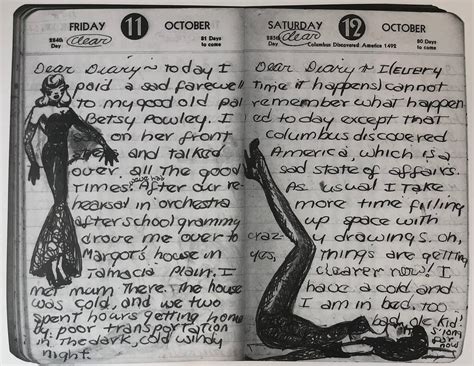 FRIDAY 11 OCTOBER
284th Day Clear 81 Days to come
Dear Diary~ Today I
paid a sad farewell
to my good old pal
Betsy Powley. I
sat on her front
and talked
over all the good
times we had. After our re-
hearsal in orchestra
after school grammy
drove me over to
Margot's house in
Jamacia Plain. I
met mum there. The house
was cold, and we two
spent hours getting home
by poor transportation
in the dark, cold windy
night.
SATURDAY 12 OCTOBER
285th Day Clear Columbus Discovered America 1492 80 Days to come
Dear Diary~ I (every
time it happens) cannot
remember what happen
ed today except that
Columbus discovered
America, which is a
sad state of affairs.
As usual I take
more time filling
up space with
crazy drawings. Oh,
yes, things are getting
clearer now! I
have a cold and
I am in bed. Too
bad, ole kid!
S'long for now